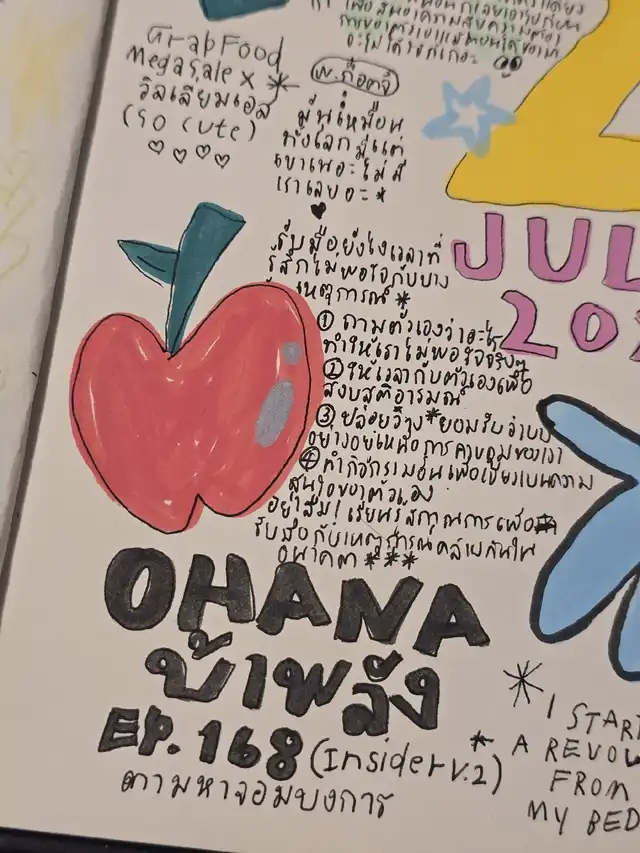 เพื่อสนอความสุขความต้อง
อะไม่ได้รักเกอะ
GrabFood
MegaSale x
วิลเลียมเอส
(so cute)
พ.ก๊อตจิ
มันเหมือน
ทั้งโลกมีแต่
เขาเพอะไม่มี
เราเลยอะ *
รับมือยังไงเวลาที่
รู้สึกไม่พอใจกับบาง
เหตุการณ์ *
① ถามตัวเองว่าอะไร
ทำให้เราไม่พอใจจริงๆ
② ให้เวลากับตัวเองเพื่อ
สงบสติอารมณ์
③ ปล่อยวาง * ยอมรับว่าบาง
อย่างอยู่เหนือการควบคุมของเรา
④ ทำกิจกรรมอื่นเพื่อเบี่ยงเบนความ
สนใจของตัวเอง
อย่าลืม! เรียนรู้สถานการเพื่อ
รับมือกับเหตุการณ์คล้ายกันใน
อนาคต ***
JUL
20
OHANA
บ้าพลัง
EP. 168 (Insider v.2)
ตามหาจอมบงการ
* I START
* A REVOL
FROM
MY BED